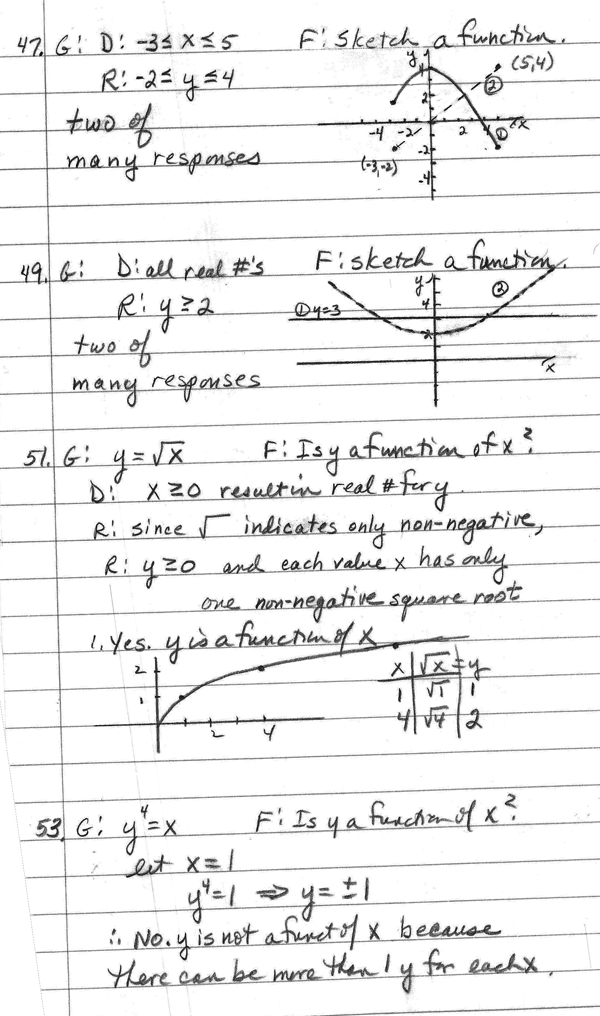 47. G: D: -3 ≤ x ≤ 5 F: Sketch a function.
R: -2 ≤ y ≤ 4
two of
many responses
y
4
(5,4)
②
2
-4 -2 2 4 ① x
-2
(-3,-2)
-4
49. G: D: all real #'s F: sketch a function.
R: y ≥ 2
two of
many responses
y
4
②
① y=3
2
x
51. G: y = √x F: Is y a function of x?
D: x ≥ 0 result in real # for y.
R: since √ indicates only non-negative,
R: y ≥ 0 and each value x has only
one non-negative square root
1. Yes. y is a function of x
2
1
2 4
x | √x = y
1 | √1 | 1
4 | √4 | 2
53. G: y⁴ = x F: Is y a function of x?
let x = 1
y⁴ = 1 ⇒ y = ±1
∴ No. y is not a funct of x because
there can be more than 1 y for each x.